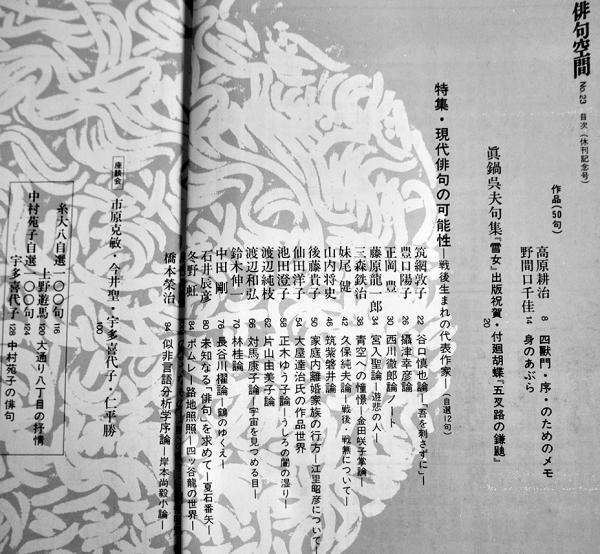 俳句空間 No.23 目次（休刊記念号）
作品（50句）
高原耕治 8 四獸門・序・のためのメモ
野間口千佳 14 身のあぶら
眞鍋呉夫句集『雪女』出版祝賀・付廻胡蝶『五叉路の鎌鼬』 20
特集・現代俳句の可能性―戦後生まれの代表作家―（自選12句）
筑網敦子 22 谷口慎也論―「吾を刺さずに」―
豊口陽子 26 攝津幸彦論
正岡豊 30 西川徹郎論ノート
藤原龍一郎 34 宮入聖論―遊悲の人―
三森鉄治 38 青空への憧憬―金田咲子掌論―
妹尾健 42 久保純夫論―戦後・戦無について―
山内将史 46 筑紫磐井論
後藤貴子 50 家庭内離婚家族の行方―江里昭彦について―
仙田洋子 54 大屋達治氏の作品世界
池田澄子 58 正木ゆう子論―うしろの闇の湿り―
渡辺純枝 62 片山由美子論
渡辺和弘 66 対馬康子論―宇宙を見つめる目―
鈴木伸一 70 林桂論
中田剛 76 長谷川櫂論―鶴のゆくえ―
石井辰彦 80 未知なる「俳句」を求めて―夏石番矢―
冬野虹 84 ポムレ―路地照照―四ッ谷龍の世界―
橋本榮治 94 似非言語分析学序論―岸本尚毅小論―
座談会 市原克敏・今井聖・宇多喜代子・仁平勝 100
糸大八自選一〇〇句 116
上野遊馬 120 大通り八丁目の抒情
中村苑子自選一〇〇句 124
宇多喜代子 128 中村苑子の俳句